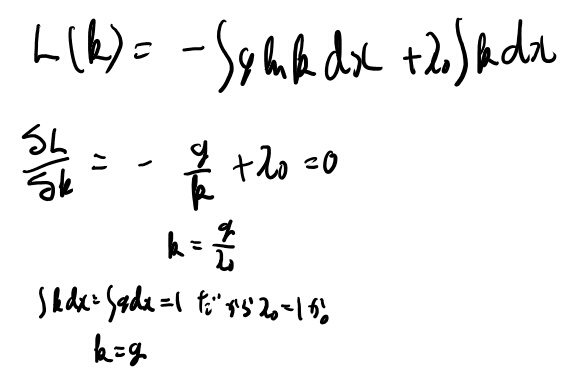 L(k) = - ∫ q ln k dx + λ₀ ∫ k dx
δL/δk = - q/k + λ₀ = 0
k = q/λ₀
∫ k dx = ∫ q dx = 1 だから λ₀ = 1 が。
k = q